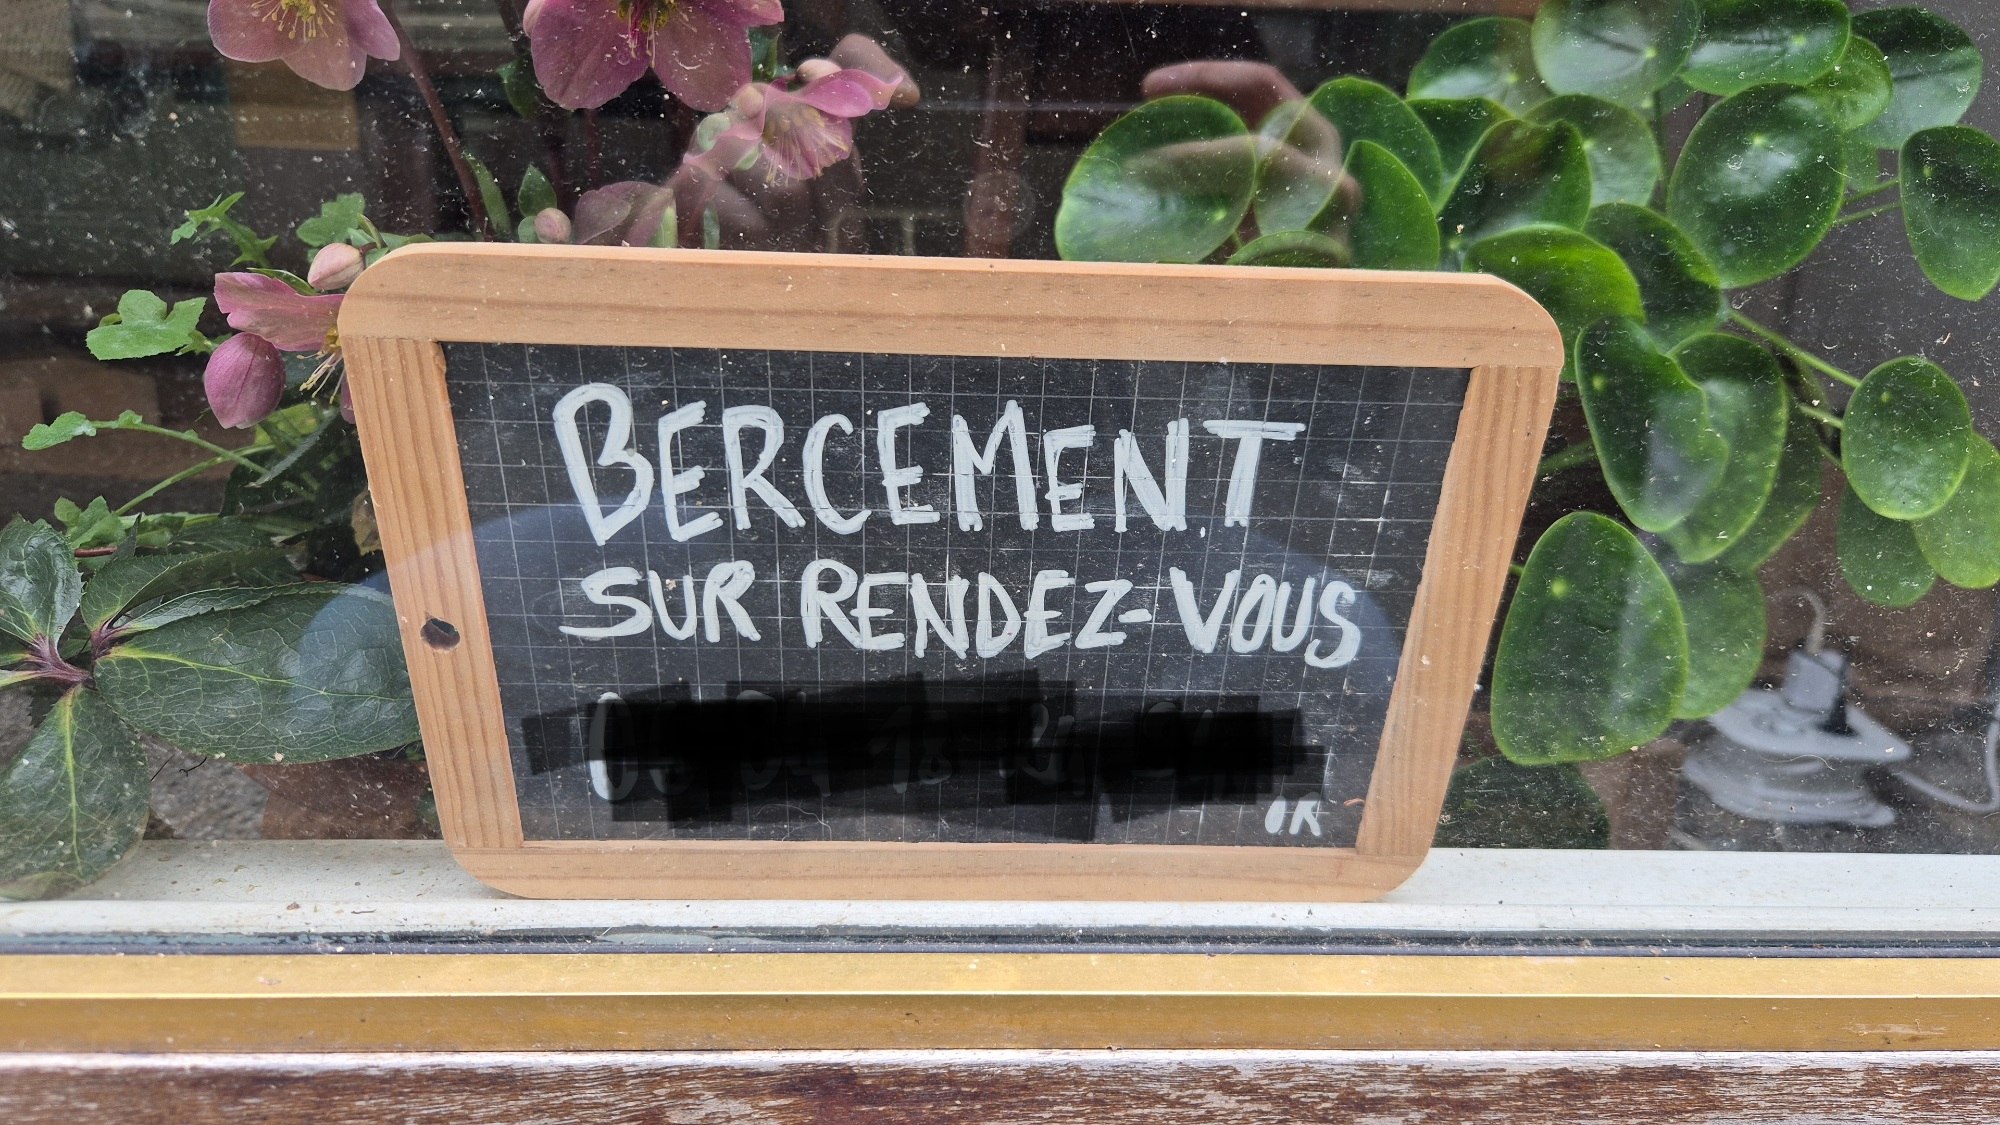 BERCEMENT
SUR RENDEZ-VOUS